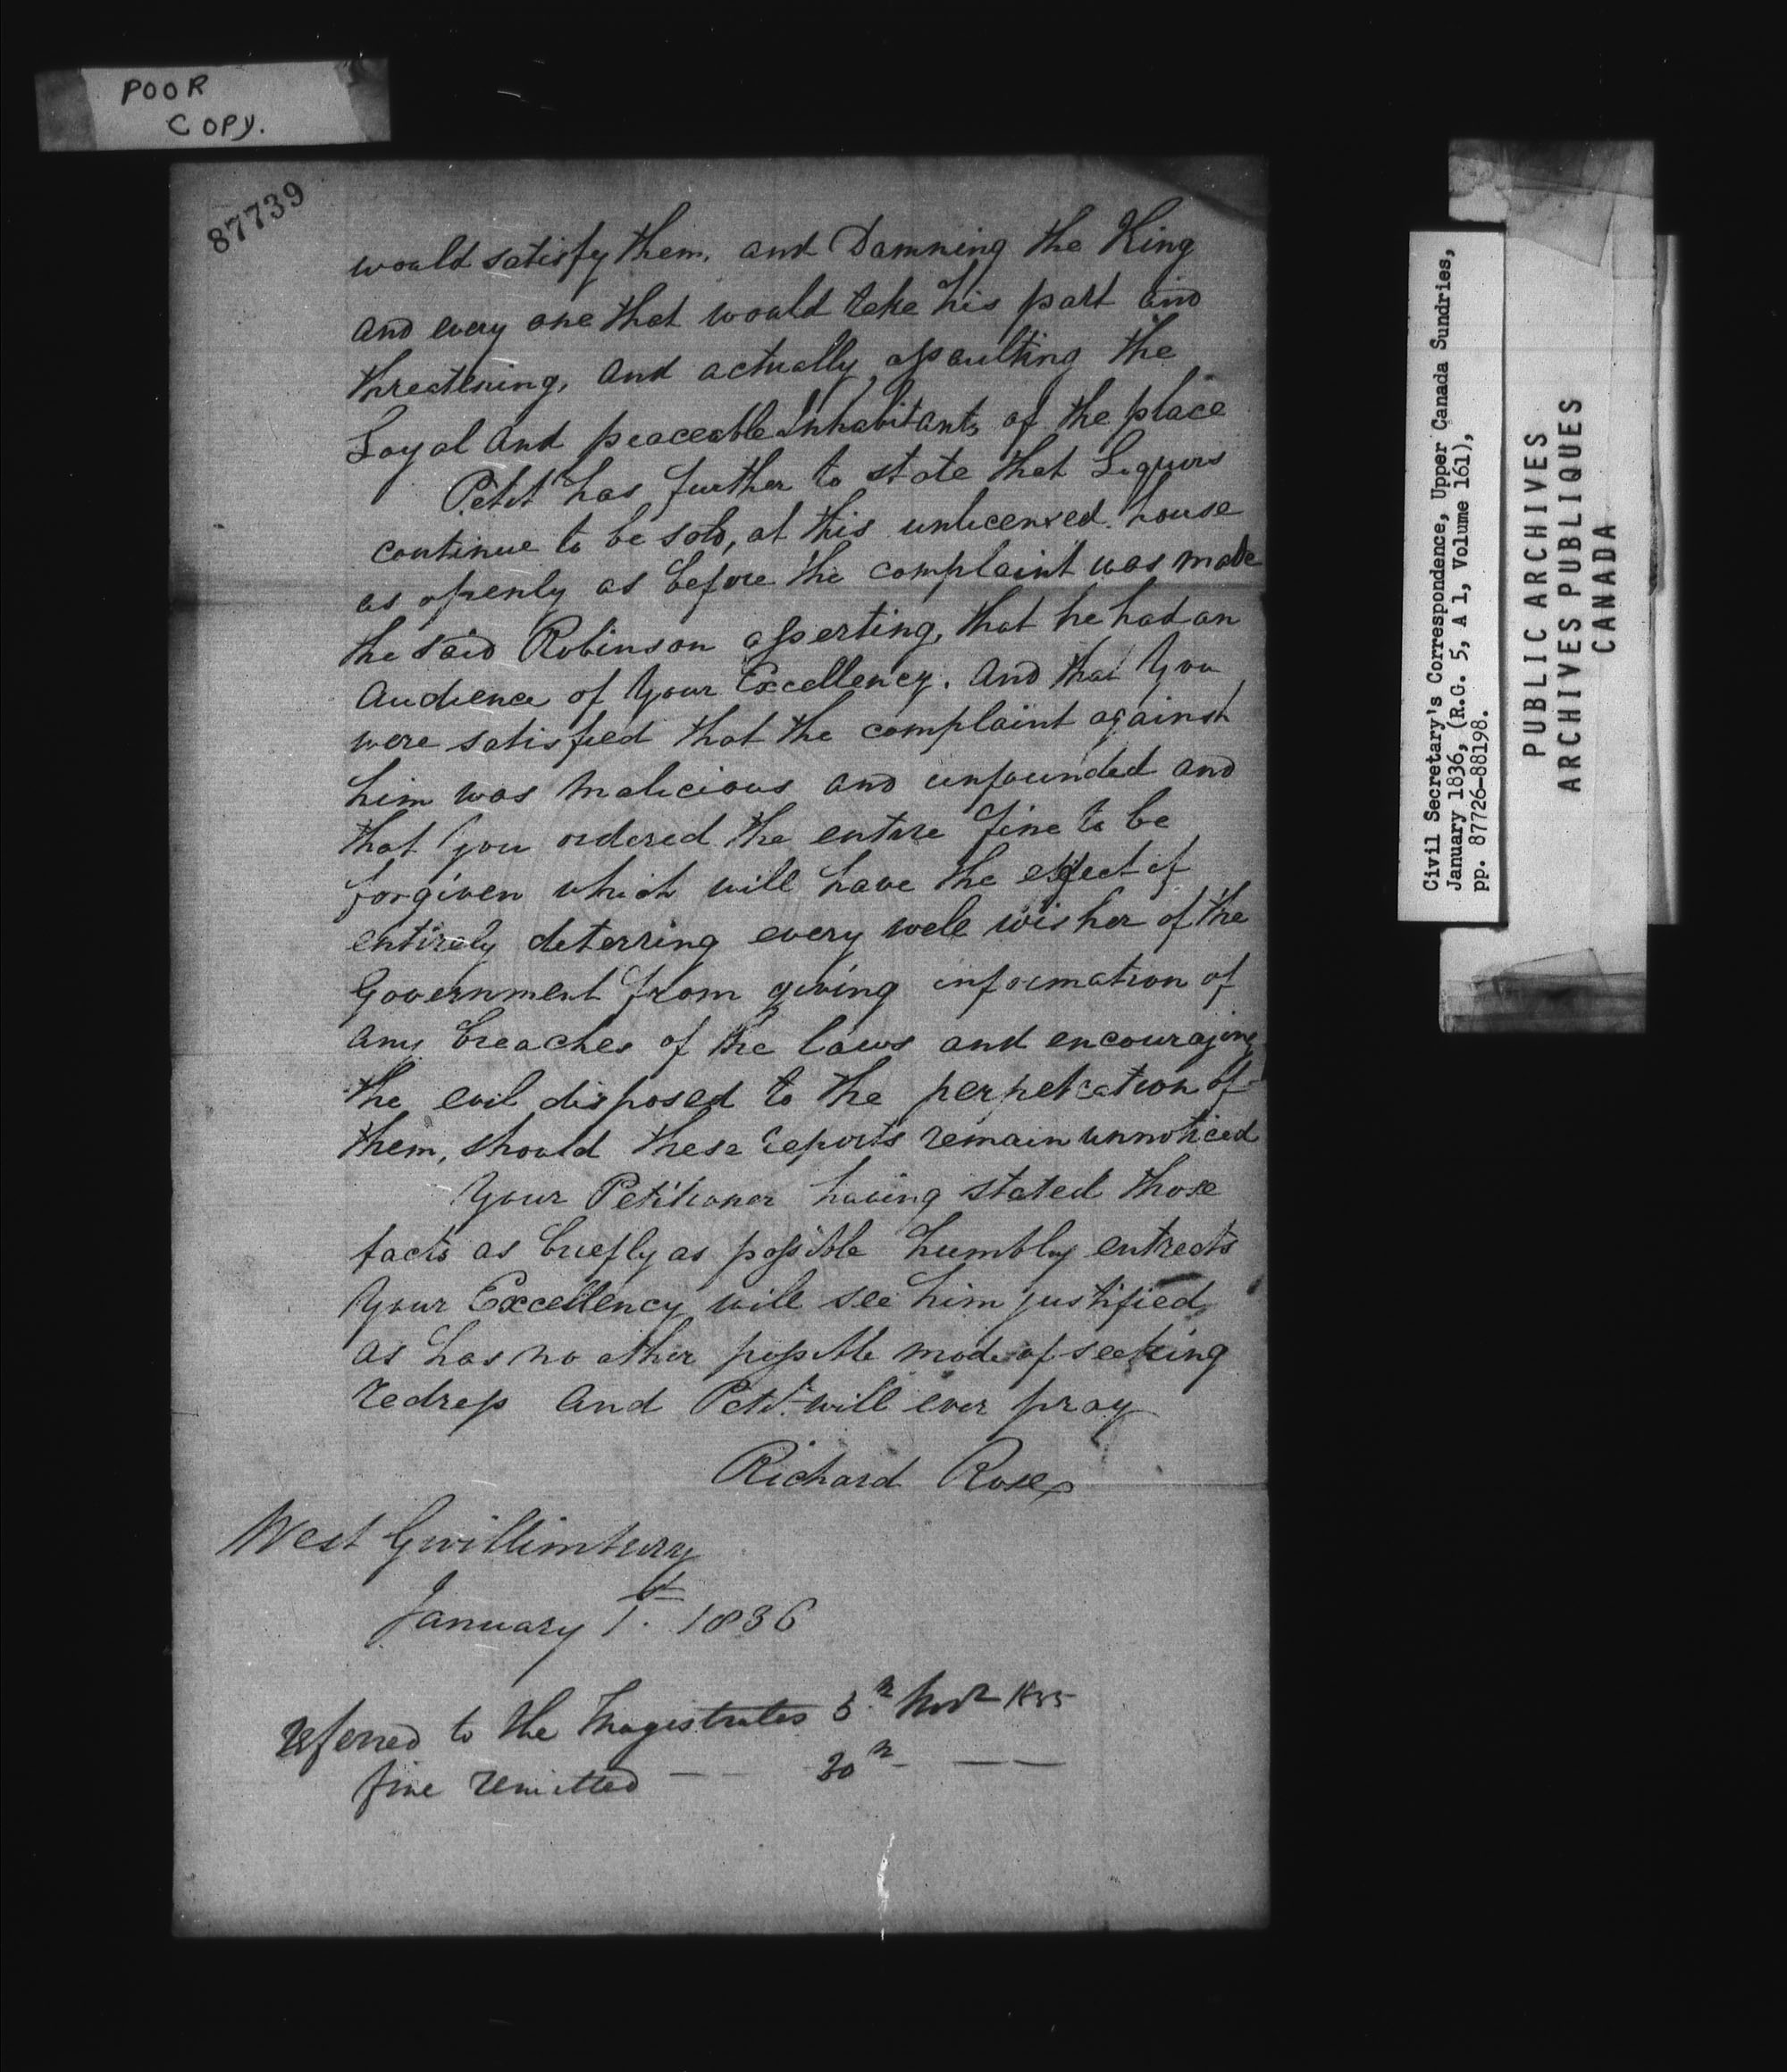 POOR
COPY.
87739
would satisfy them, and Damning the King
and every one that would take his part and
threatening, and actually assaulting the
Loyal and peaceable Inhabitants of the place
Petit has further to state that Liquors
continue to be sold, at this unlicensed house
as openly as before the complaint was made
the said Robinson asserting, that he had an
Audience of Your Excellency. And that You
were satisfied that the complaint against
him was malicious and unfounded and
that you ordered the entire fine to be
forgiven which will have the effect of
entirely deterring every well wisher of the
Government from giving information of
any breaches of the laws and encouraging
the evil disposed to the perpetration of
them, should these reports remain unnoticed
Your Petitioner having stated those
facts as briefly as possible humbly entreats
Your Excellency will see him justified
as has no other possible mode of seeking
redress And Petr. will ever pray
Richard Rose
West Gwillimbury
January 1st. 1836
Referred to the Magistrates 5th Novr 1835
fine remitted — — 30th — —
Civil Secretary's Correspondence, Upper Canada Sundries,
January 1836, (R.G. 5, A 1, Volume 161),
pp. 87726-88198.
PUBLIC ARCHIVES
ARCHIVES PUBLIQUES
CANADA